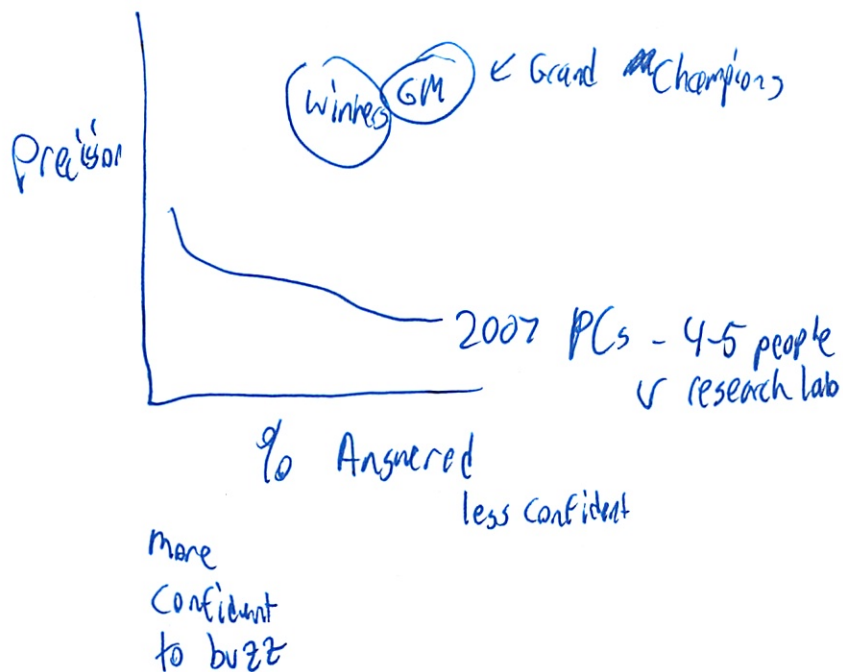 Winners GM ← Grand Champions
Precision
2007 PCs - 4-5 people
research lab
% Answered
less confident
more
confident
to buzz